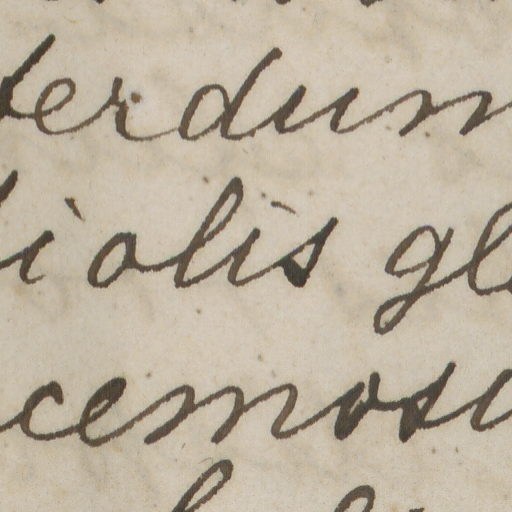 terdum
iolis gl
cemosu